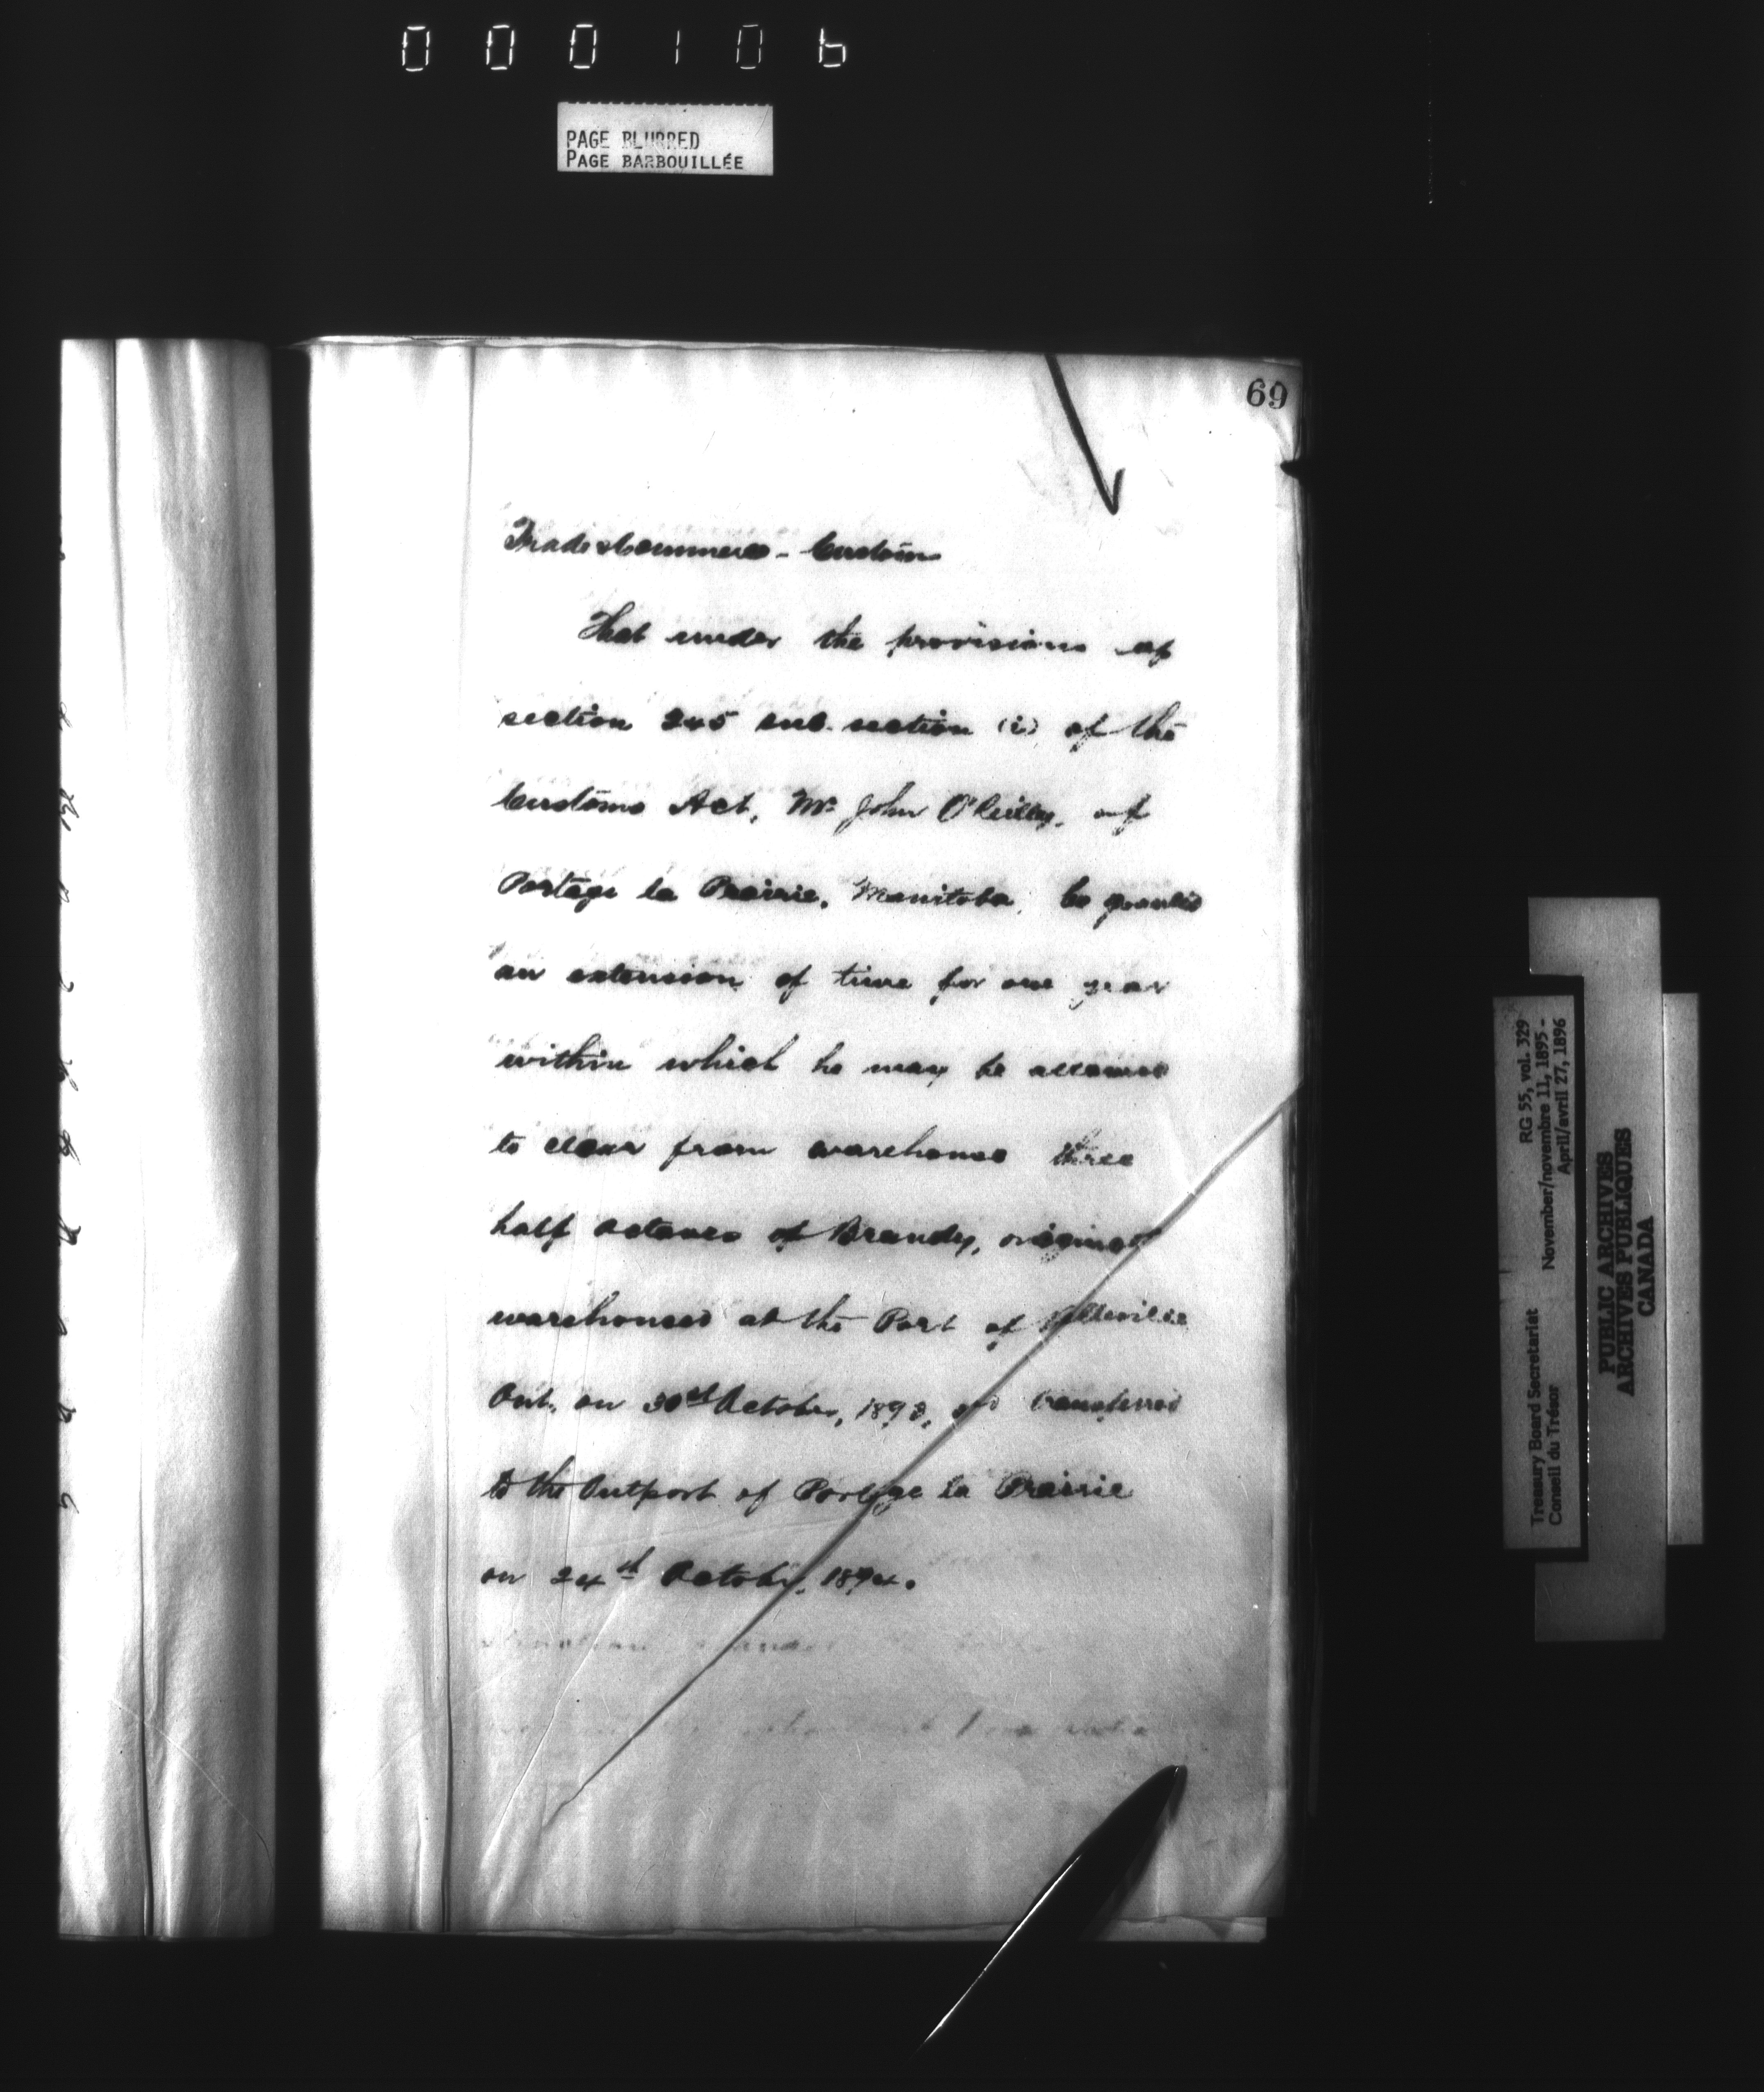 000106
PAGE BLURRED
PAGE BARBOUILLÉE
69
Trade & Commerce - Customs
That under the provisions of
section 245 sub. section (i) of the
Customs Act, Mr. John O'Reilly, of
Portage la Prairie, Manitoba, be granted
an extension of time for one year
within which he may be allowed
to clear from warehouse three
half octaves of Brandy, original
warehoused at the Port of Belleville
Ont. on 30th October, 1893, and transferred
to the Outport of Portage la Prairie
on 24th October, 1894.
RG 55, vol. 329
November/novembre 11, 1895 -
April/avril 27, 1896
Treasury Board Secretariat
Conseil du Trésor
PUBLIC ARCHIVES
ARCHIVES PUBLIQUES
CANADA